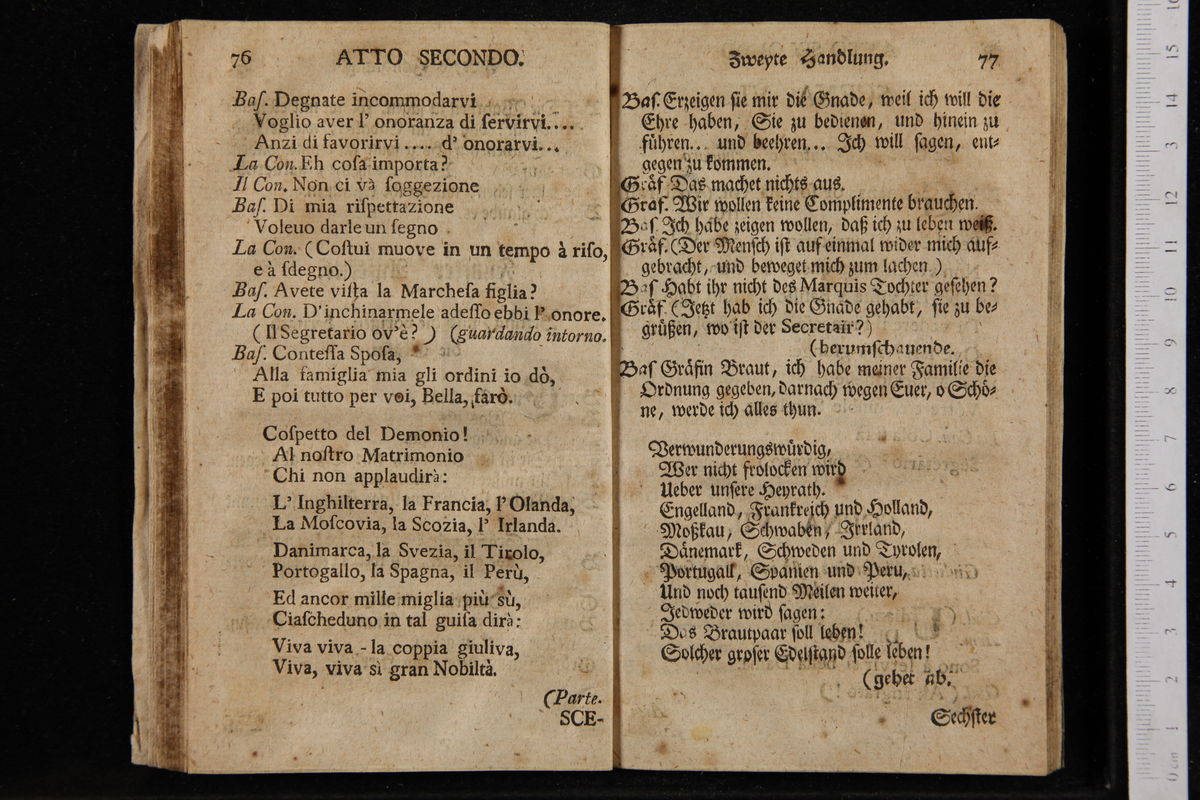 76 ATTO SECONDO.
Baſ. Degnate incommodarvi
Voglio aver l' onoranza di ſervirvi....
Anzi di favorirvi .... d' onorarvi...
La Con. Eh coſa importa?
Il Con. Non ci và ſoggezione
Baſ. Di mia riſpettazione
Voleuo darle un ſegno
La Con. (Coſtui muove in un tempo à riſo,
e à ſdegno.)
Baſ. Avete viſta la Marcheſa figlia?
La Con. D'inchinarmele adeſſo ebbi l' onore.
( Il Segretario ov'è? ) (guardando intorno.
Baſ. Conteſſa Spoſa,
Alla famiglia mia gli ordini io dò,
E poi tutto per voi, Bella, farò.
Coſpetto del Demonio!
Al noſtro Matrimonio
Chi non applaudirà:
L' Inghilterra, la Francia, l' Olanda,
La Moſcovia, la Scozia, l' Irlanda.
Danimarca, la Svezia, il Tirolo,
Portogallo, la Spagna, il Perù,
Ed ancor mille miglia più sù,
Ciaſcheduno in tal guiſa dirà:
Viva viva - la coppia giuliva,
Viva, viva sì gran Nobiltà.
(Parte.
SCE-
Zweyte Handlung. 77
Baſ. Erzeigen ſie mir die Gnade, weil ich will die
Ehre haben, Sie zu bedienen, und hinein zu
führen... und beehren... Ich will ſagen, ent⸗
gegen zu kommen.
Gräf Das machet nichts aus.
Graf. Wir wollen keine Complimente brauchen.
Baſ Ich habe zeigen wollen, daß ich zu leben weiß.
Gräf. (Der Menſch iſt auf einmal wider mich auf⸗
gebracht, und beweget mich zum lachen )
Baſ Habt ihr nicht des Marquis Tochter geſehen?
Gräf (Jetzt hab ich die Gnade gehabt, ſie zu be⸗
grüßen, wo iſt der Secretair?)
(herumſchauende.
Baſ Gräfin Braut, ich habe meiner Familie die
Ordnung gegeben, darnach wegen Euer, o Schö⸗
ne, werde ich alles thun.
Verwunderungswürdig,
Wer nicht frolocken wird
Ueber unſere Heyrath.
Engelland, Frankreich und Holland,
Moßkau, Schwaben, Irrland,
Dänemark, Schweden und Tyrolen,
Portugall, Spanien und Peru,
Und noch tauſend Meilen weiter,
Jedweder wird ſagen:
Das Brautpaar ſoll leben!
Solcher groſer Edelſtand ſolle leben!
(gehet ab.
Sechſter